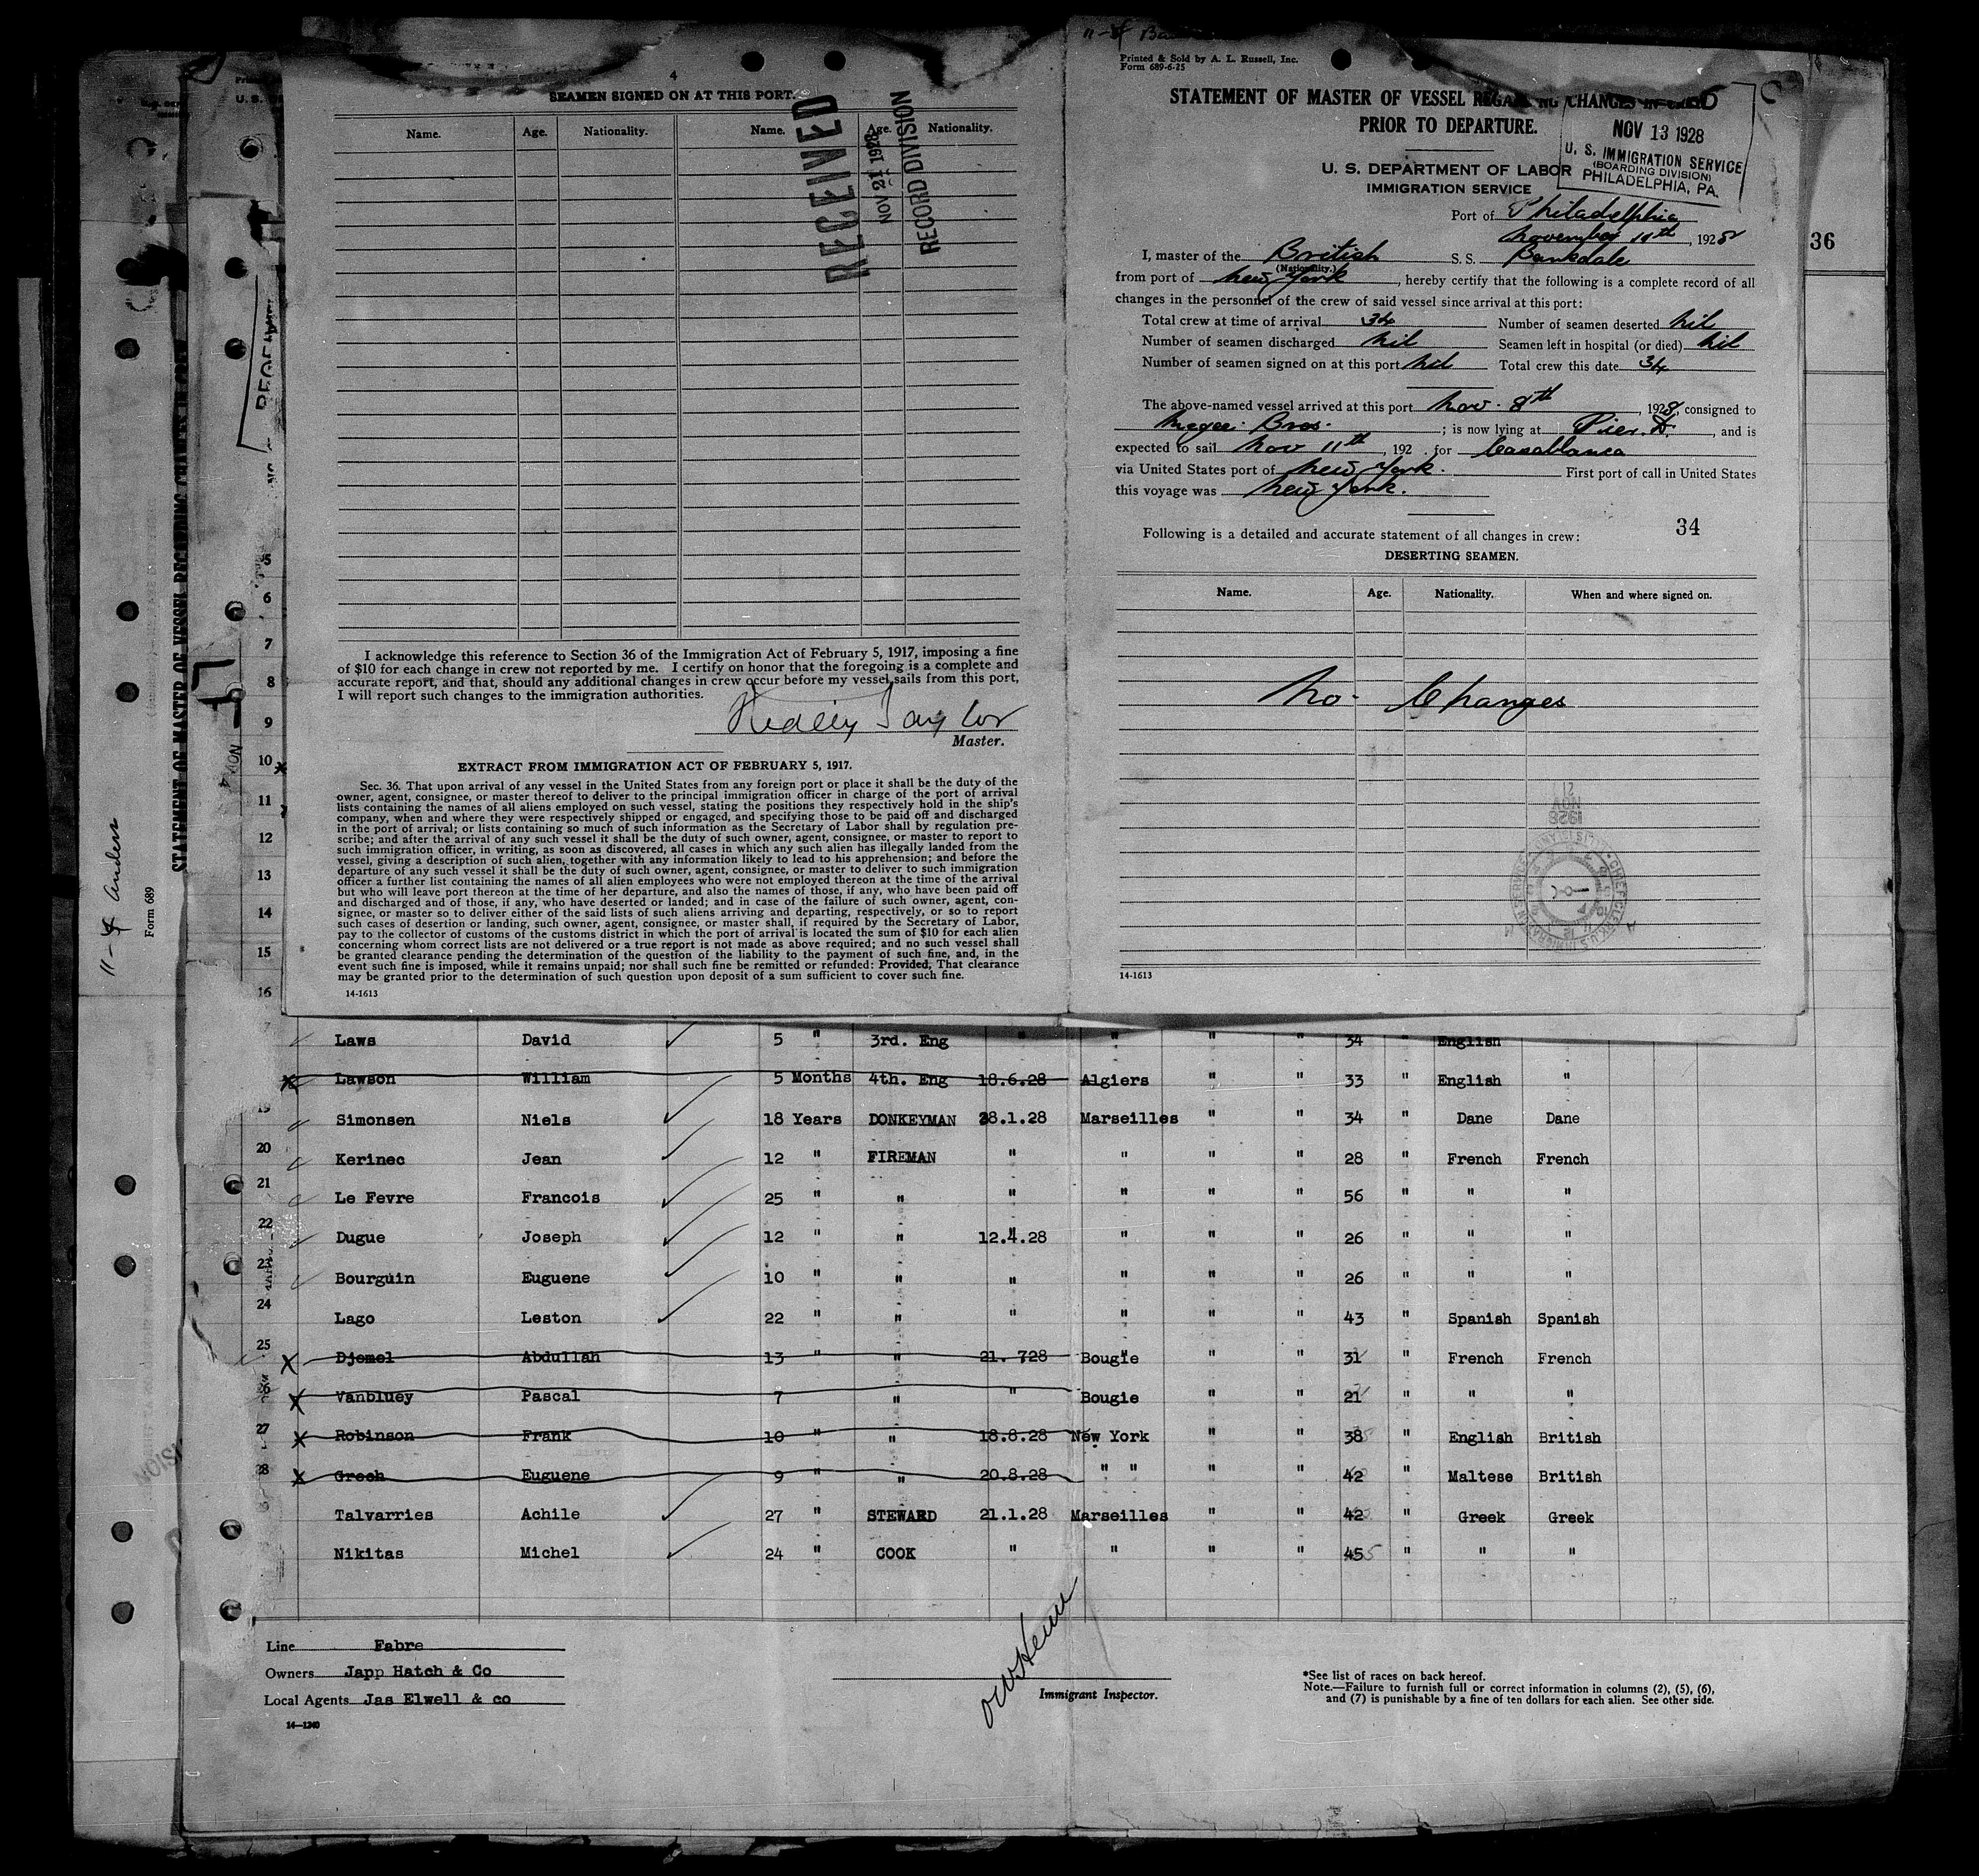 4
SEAMEN SIGNED ON AT THIS PORT.
Name. Age. Nationality. Name. Age. Nationality.
RECEIVED
NOV 21 1928
RECORD DIVISION
I acknowledge this reference to Section 36 of the Immigration Act of February 5, 1917, imposing a fine
of $10 for each change in crew not reported by me. I certify on honor that the foregoing is a complete and
accurate report, and that, should any additional changes in crew occur before my vessel sails from this port,
I will report such changes to the immigration authorities.
Taylor
Master.
EXTRACT FROM IMMIGRATION ACT OF FEBRUARY 5, 1917.
Sec. 36. That upon arrival of any vessel in the United States from any foreign port or place it shall be the duty of the
owner, agent, consignee, or master thereof to deliver to the principal immigration officer in charge of the port of arrival
lists containing the names of all aliens employed on such vessel, stating the positions they respectively hold in the ship's
company, when and where they were respectively shipped or engaged, and specifying those to be paid off and discharged
in the port of arrival; or lists containing so much of such information as the Secretary of Labor shall by regulation pre-
scribe; and after the arrival of any such vessel it shall be the duty of such owner, agent, consignee, or master to report to
such immigration officer, in writing, as soon as discovered, all cases in which any such alien has illegally landed from the
vessel, giving a description of such alien, together with any information likely to lead to his apprehension; and before the
departure of any such vessel it shall be the duty of such owner, agent, consignee, or master to deliver to such immigration
officer a further list containing the names of all alien employees who were not employed thereon at the time of the arrival
but who will leave port thereon at the time of her departure, and also the names of those, if any, who have been paid off
and discharged and of those, if any, who have deserted or landed; and in case of the failure of such owner, agent, con-
signee, or master so to deliver either of the said lists of such aliens arriving and departing, respectively, or so to report
such cases of desertion or landing, such owner, agent, consignee, or master shall, if required by the Secretary of Labor,
pay to the collector of customs of the customs district in which the port of arrival is located the sum of $10 for each alien
concerning whom correct lists are not delivered or a true report is not made as above required; and no such vessel shall
be granted clearance pending the determination of the question of the liability to the payment of such fine, and, in the
event such fine is imposed, while it remains unpaid; nor shall such fine be remitted or refunded: Provided, That clearance
may be granted prior to the determination of such question upon deposit of a sum sufficient to cover such fine.
14-1613
Printed & Sold by A. L. Russell, Inc.
Form 689-6-25
STATEMENT OF MASTER OF VESSEL CHANGES IN
PRIOR TO DEPARTURE.
NOV 13 1928
U. S. IMMIGRATION SERVICE
(BOARDING DIVISION)
PHILADELPHIA, PA.
U. S. DEPARTMENT OF LABOR
IMMIGRATION SERVICE
Port of Philadelphia
November 11th, 1928
I, master of the British S. S. Bankdale
(Nationality.)
from port of New York, hereby certify that the following is a complete record of all
changes in the personnel of the crew of said vessel since arrival at this port:
Total crew at time of arrival 34 Number of seamen deserted nil
Number of seamen discharged nil Seamen left in hospital (or died) nil
Number of seamen signed on at this port nil Total crew this date 34
The above-named vessel arrived at this port Nov. 8th, 1928, consigned to
Megee Bros. ; is now lying at Pier. D. , and is
expected to sail Nov 11th, 192 . for Casablanca
via United States port of New York. First port of call in United States
this voyage was New York.
34
Following is a detailed and accurate statement of all changes in crew:
DESERTING SEAMEN.
Name. Age. Nationality. When and where signed on.
No. Changes
14-1613
36
STATEMENT OF MASTER OF VESSEL REGARDING
Form 689
5
6
7
8
9
10
11
12
13
14
15
16
Laws David 5 " 3rd. Eng " " " " 34 " English
Lawson William 5 Months 4th. Eng 18.6.28 Algiers " " 33 " English "
19 Simonsen Niels 18 Years DONKEYMAN 28.1.28 Marseilles " " 34 " Dane Dane
20 Kerinec Jean 12 " FIREMAN " " " " 28 " French French
21 Le Fevre Francois 25 " " " " " " 56 " " "
22 Dugue Joseph 12 " " 12.4.28 " " " 26 " " "
23 Bourguin Euguene 10 " " " " " " 26 " " "
24 Lago Leston 22 " " " " " " 43 " Spanish Spanish
25 Djemel Abdullah 13 " " 21. 728 Bougie " " 31 " French French
26 Vanbluey Pascal 7 " " Bougie " " 21 " " "
27 Robinson Frank 10 " " 18.8.28 New York " " 38 " English British
28 Grech Euguene 9 " " 20.8.28 " " " " 42 " Maltese British
Talvarries Achile 27 " STEWARD 21.1.28 Marseilles " " 42 " Greek Greek
Nikitas Michel 24 " COOK " " " " 45 " " "
Line Fabre
Owners Japp Hatch & Co
Local Agents Jas Elwell & co
14—1240
Immigrant Inspector.
*See list of races on back hereof.
Note.—Failure to furnish full or correct information in columns (2), (5), (6),
and (7) is punishable by a fine of ten dollars for each alien. See other side.